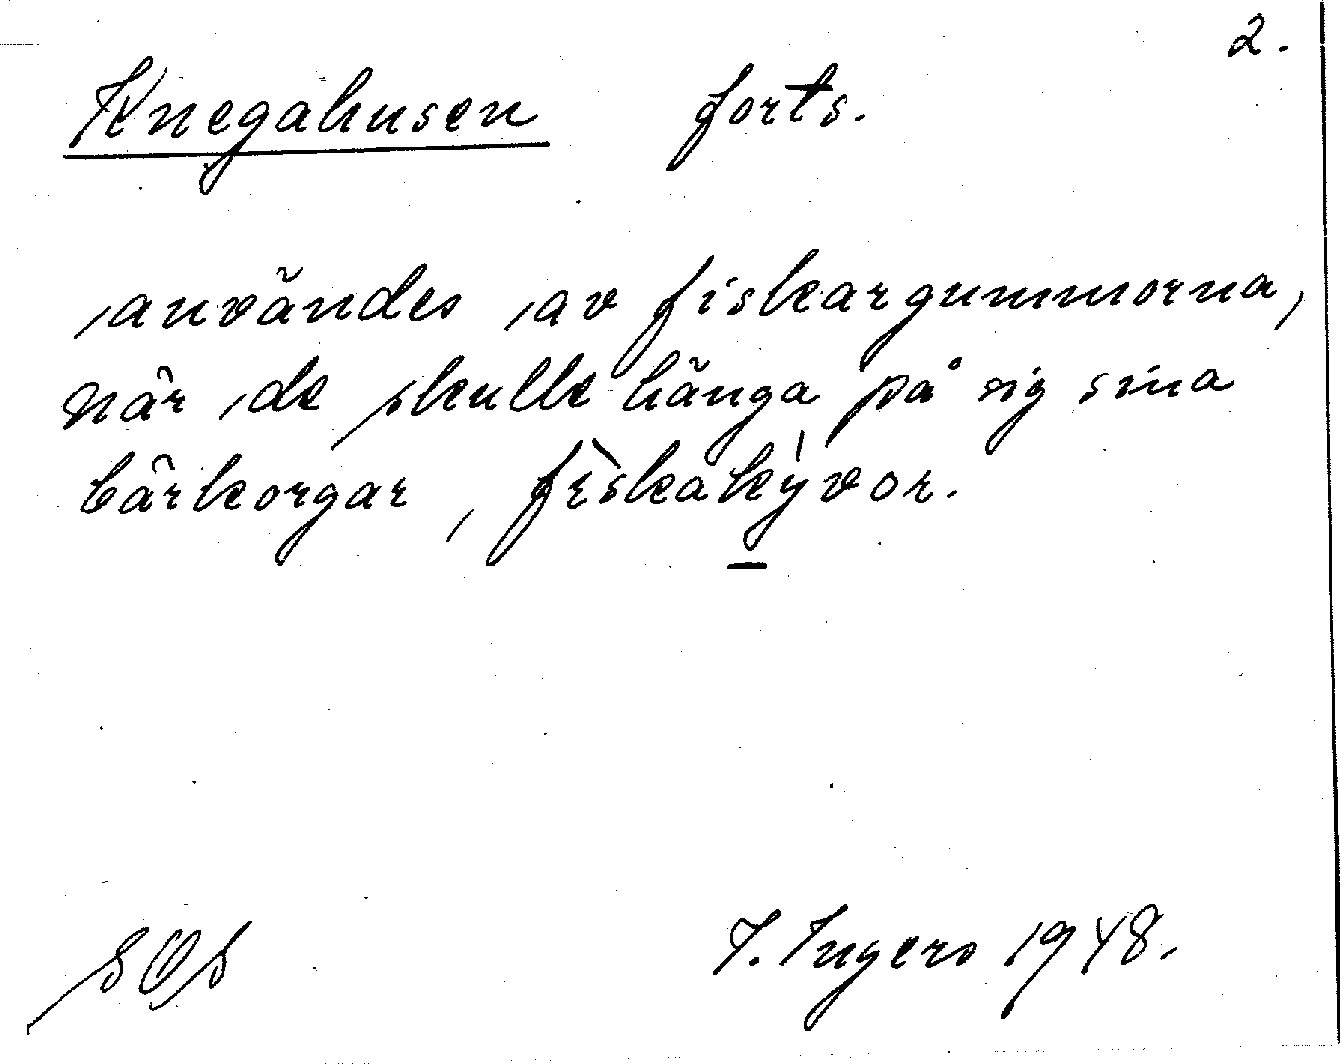 2.
Knegahusen forts.
användes av fiskargummorna,
när de skulle hänga på sig sina
bärkorgar, fìskakývor.
SOS
I. Ingers 1948.